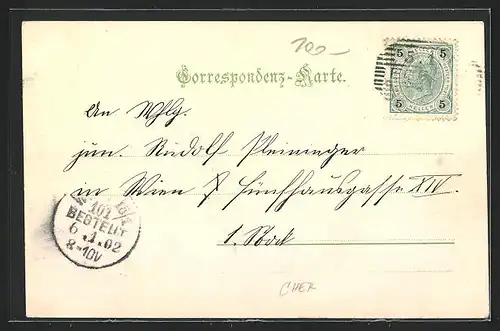 100-
Correspondenz-Karte.
5 5
5 HELLER 5
An Whlg.
jun. Rudolf Pleininger
in Wien Fünfhausgasse XIV.
1. Stock
101
BESTELLT
6.1.02
8-10V
CHER